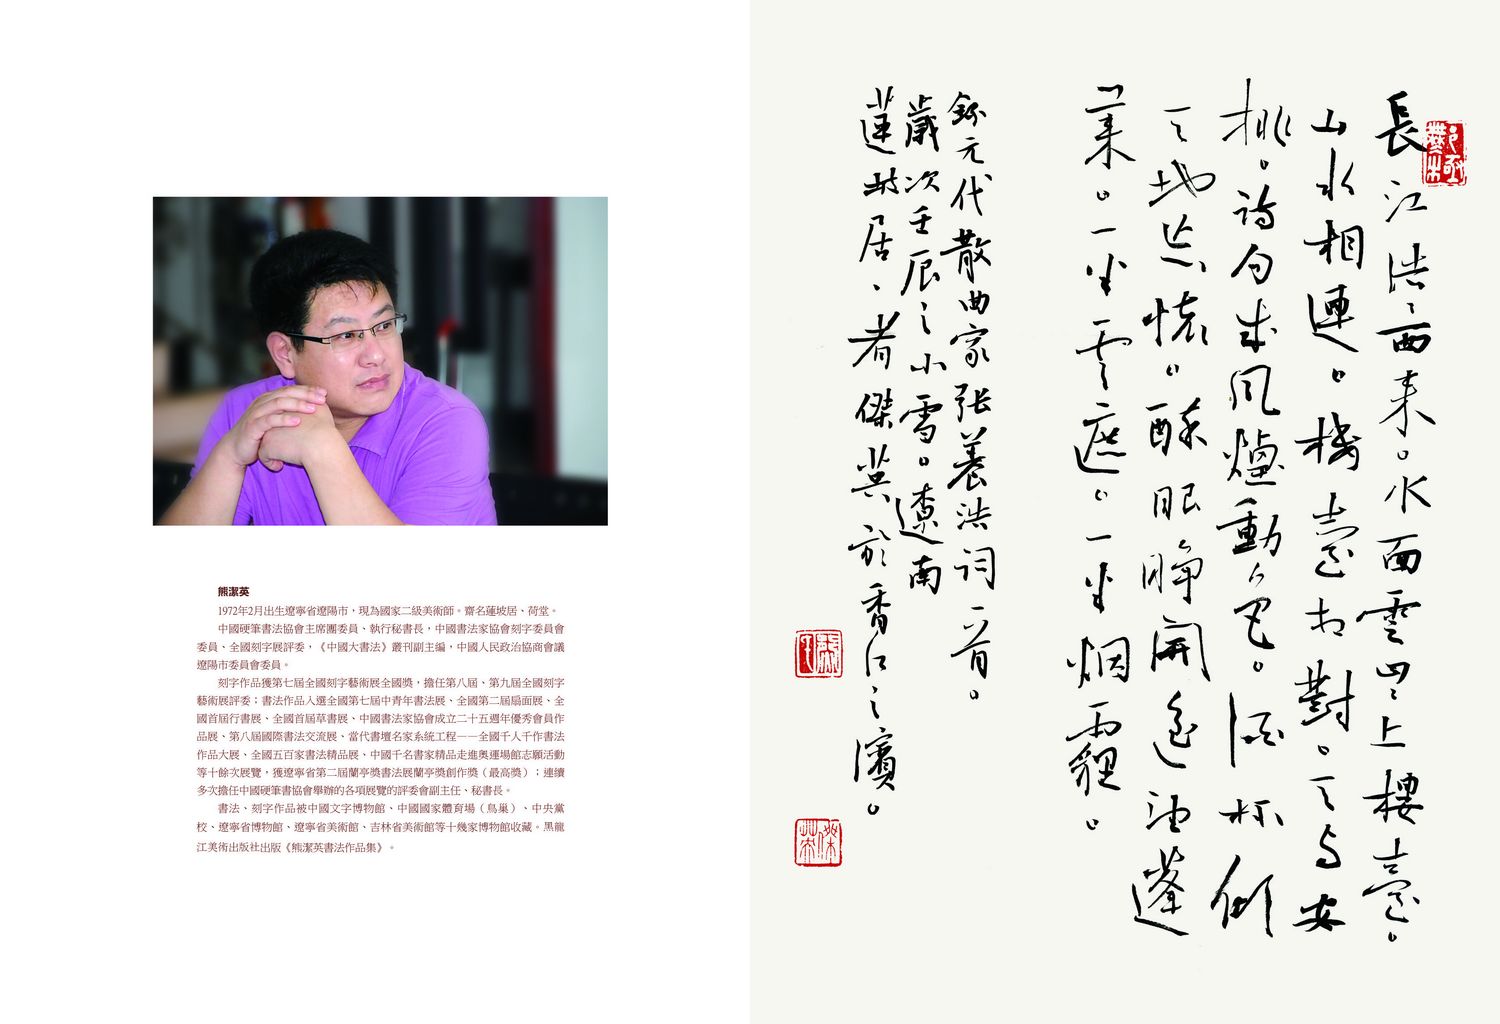 熊潔英
1972年2月出生遼寧省遼陽市，現為國家二級美術師。齋名蓮坡居、荷堂。
中國硬筆書法協會主席團委員、執行秘書長，中國書法家協會刻字委員會
委員、全國刻字展評委，《中國大書法》叢刊副主編，中國人民政治協商會議
遼陽市委員會委員。
刻字作品獲第七屆全國刻字藝術展全國獎，擔任第八屆、第九屆全國刻字
藝術展評委；書法作品入選全國第七屆中青年書法展、全國第二屆扇面展、全
國首屆行書展、全國首屆草書展、中國書法家協會成立二十五週年優秀會員作
品展、第八屆國際書法交流展、當代書壇名家系統工程——全國千人千作書法
作品大展、全國五百家書法精品展、中國千名書家精品走進奧運場館志願活動
等十餘次展覽，獲遼寧省第二屆蘭亭獎書法展蘭亭獎創作獎（最高獎）；連續
多次擔任中國硬筆書協會舉辦的各項展覽的評委會副主任、秘書長。
書法、刻字作品被中國文字博物館、中國國家體育場（鳥巢）、中央黨
校、遼寧省博物館、遼寧省美術館、吉林省美術館等十幾家博物館收藏。黑龍
江美術出版社出版《熊潔英書法作品集》。
長江浩〻西来。水面雲山〻上樓臺。
山水相連。樓臺相對。天与安
排。詩句成風煙動色。酒杯傾
天地忘懷。醉眼睁開遥望蓬
萊。一半雲遮。一半烟霾。
錄元代散曲家张養浩詞一首。
歲次壬辰之小雪。遼南
蓮坡居〻者傑英於香江之濱。